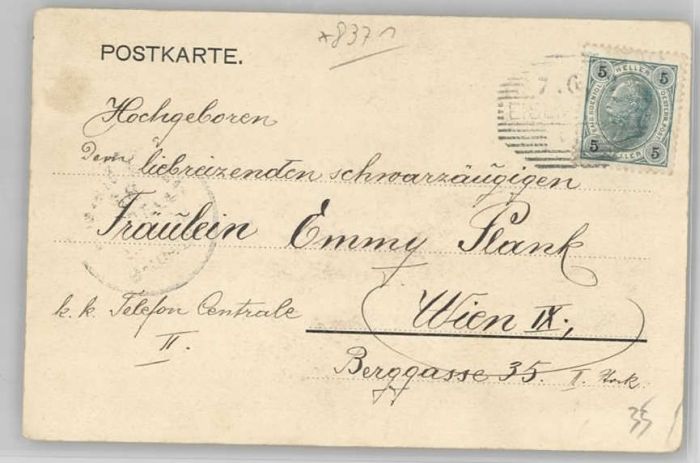 *8371
POSTKARTE.
5 HELLER 5
5 HELLER 5
Hochgeboren
Dem liebreizenden schwarzäugigen
Fräulein Emmy Plank
k. k. Telefon Centrale
II.
Wien IX;
Berggasse 35. I. Stock